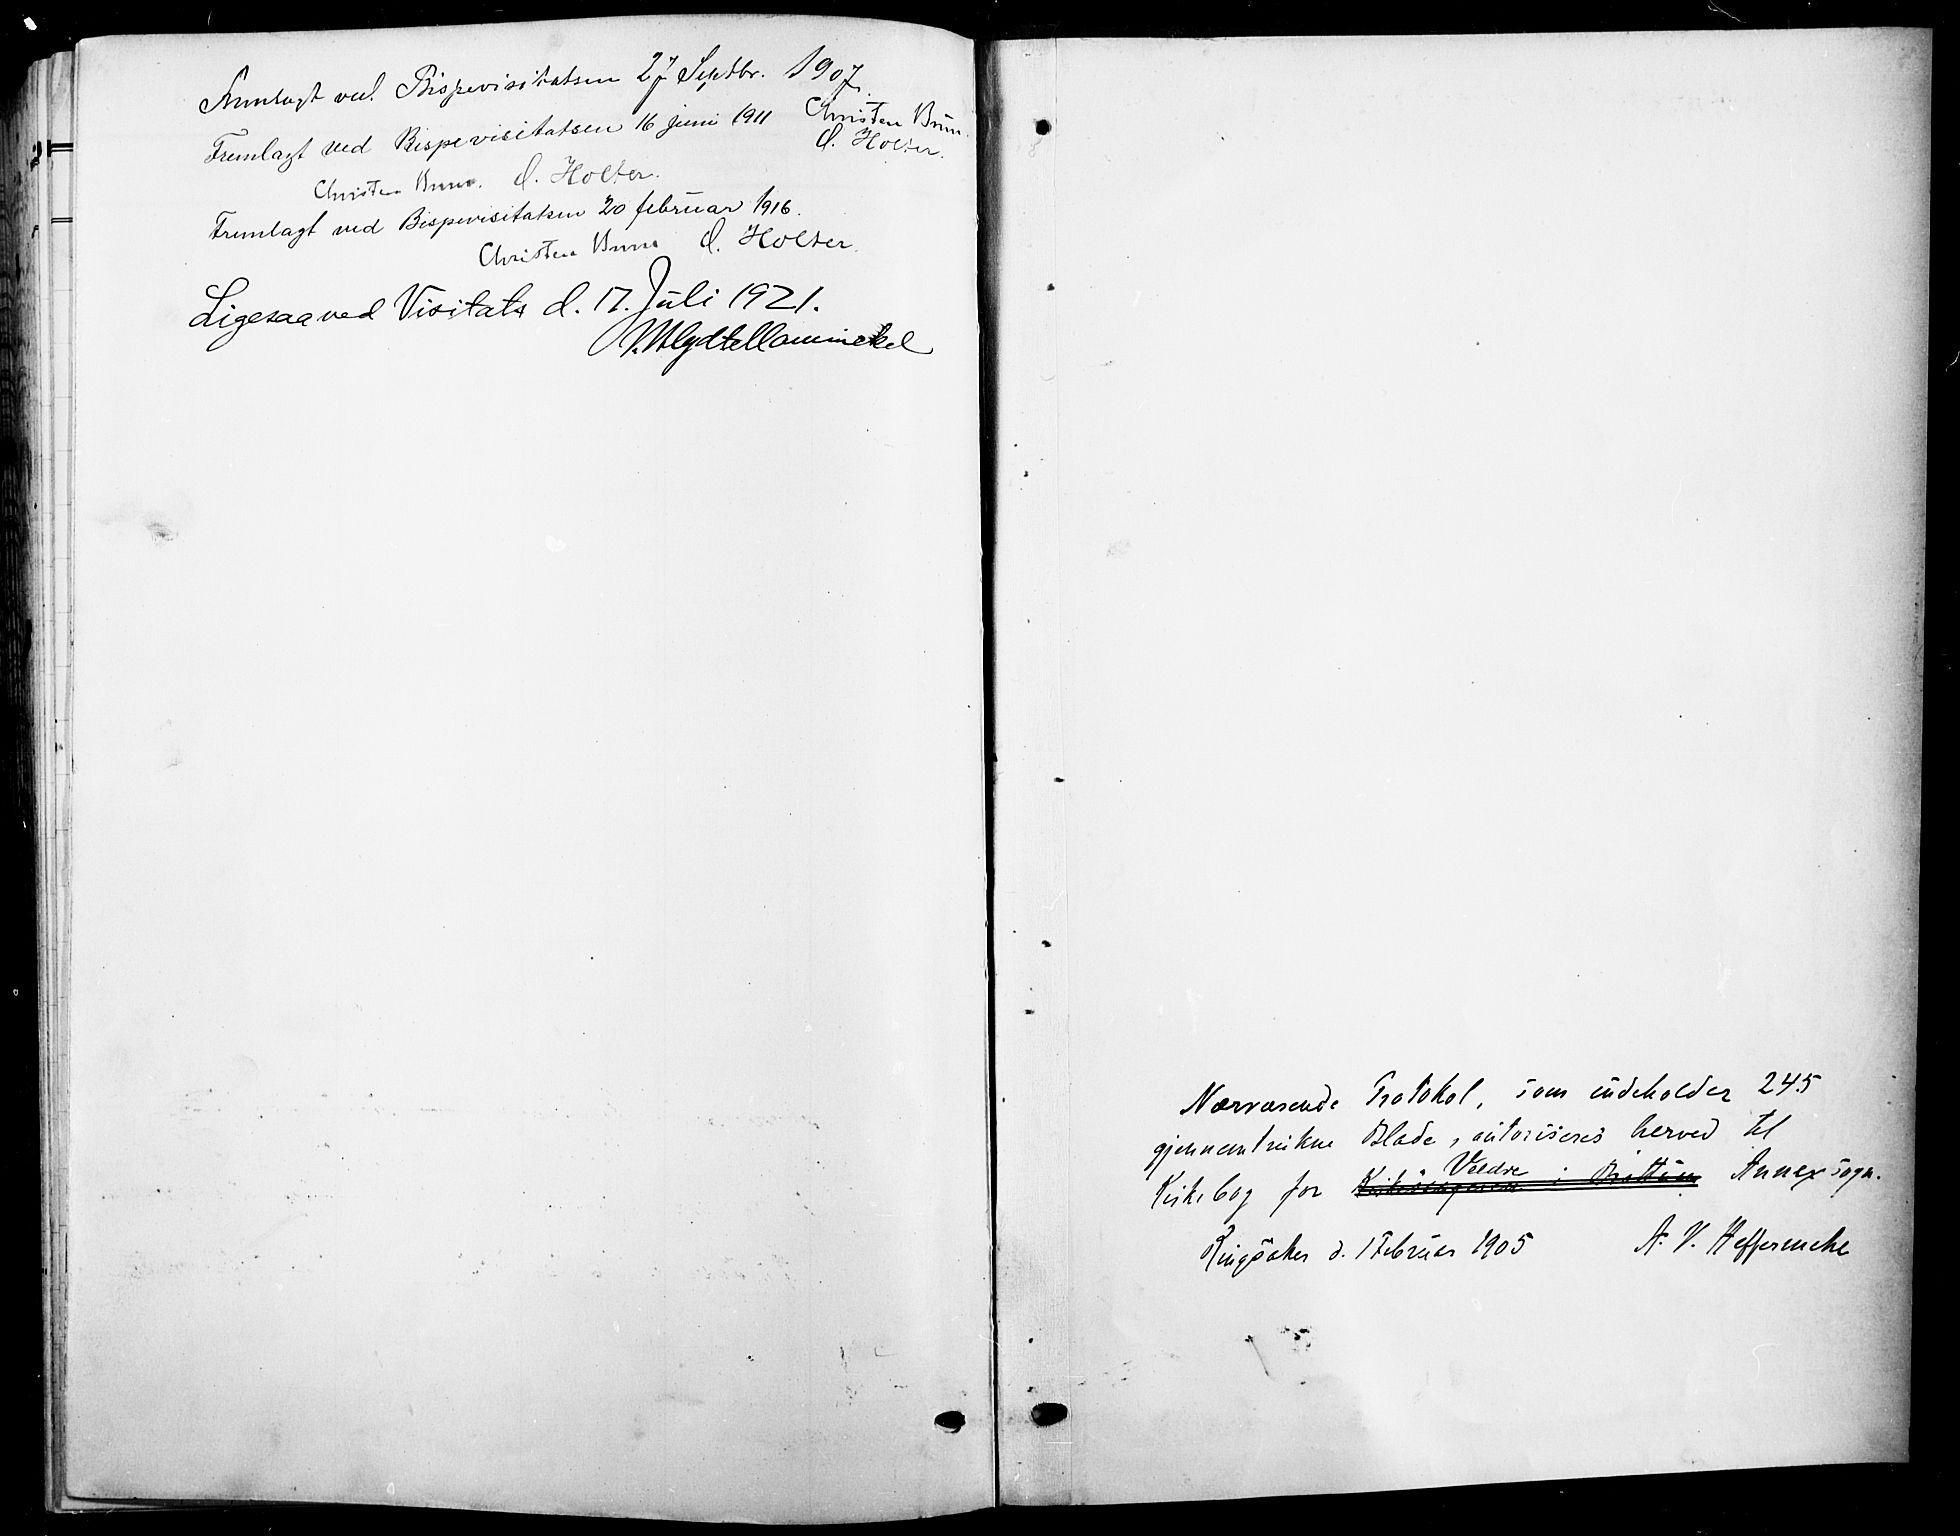 Fremlagt ved Bispevisitatsen 27 Septbr. 1907.
Christen Brun.
O. Holter.
Fremlagt ved Bispevisitatsen 16 juni 1911
Christen Brun. O. Holter.
Fremlagt ved Bispevisitatsen 20 februar 1916.
Christen Brun O. Holter.
Ligesaa ved Visitats d. 17. Juli 1921.
Nærværende Protokol, som indeholder 245
gjennemtrukne Blade, autoriseres herved til
Kirkebog for Veldre Annexsogn.
Ringsaker d. 1 Februar 1905 A. V. Heffermehl